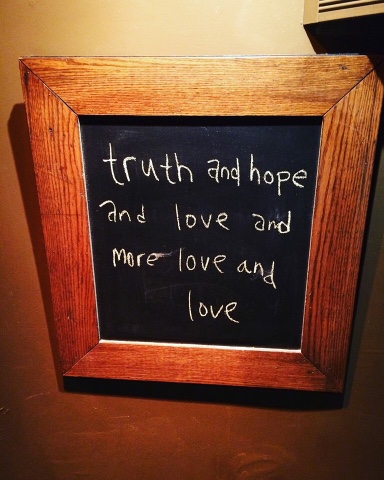 truth and hope
and love and
more love and
love